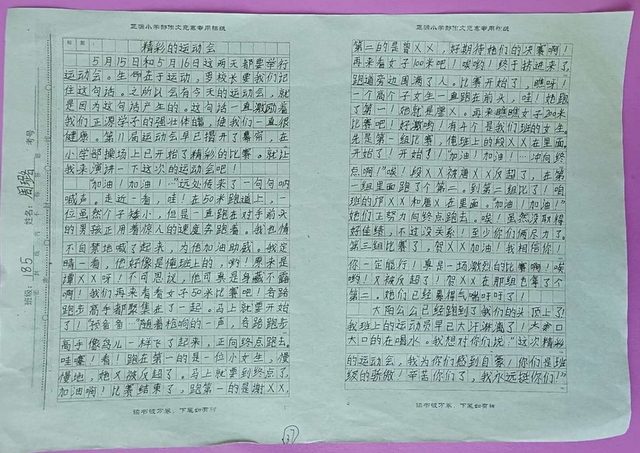 正源小学部作文竞赛专用稿纸
精彩的运动会
5月15日和5月16日这两天都要举行
运动会。生命在于运动,男校长要我们记
住这句话。之所以会有今天的运动会,就
是因为这句话产生的。这句话一直激励着
我们正源学子的强壮体魄,使我们一直很
健康。第11届运动会早已揭开了幕帘,在
小学部操场上已开始了精彩的比赛。就让
我来演讲一下这次的运动会吧!
“加油!加油!”远处传来了一句句呐
喊声。走近一看,哇!在50米跑道上,一
位虽然个子矮小,但是一直跑在对手前
的男孩正用着惊人的速度奔跑着。我也情
不自禁地喊了起来,为他加油助威。我定
睛一看,他好像是俺班上的,哟!原来是
XX呀!不可思议,他可真是身藏不露
啊!我们再来看看女子50米比赛吧!各路
跑步高手都聚集在了一起。马上就要开始
了!预备——“随着枪响的一声,各路跑步
高手像鸟儿一样飞了起来,正向终点跑去。
哇噻!看!跑在第一的是一位小女生,慢
慢地,她又被反超了,马上就要到终点了,
加油啊!比赛结束了,跑第一的是谢XX,
读书破万卷,下笔如有神
班级:185
姓名:
考号
正源小学部作文竞赛专用稿纸
第二的是曾XX,好期待他们的决赛啊!
再来看女子100米吧!唉哟!终于挤进来了,
跑道旁边围满了人。比赛开始了,瞧呀!
一个高个子女生一直跑在前头,哇!她跑
了第一!她就是廖X。再来瞧瞧女子200米
比赛吧!好激哟!有卄个是我们班的女生。
先是第一组比赛,俺班上的段XX在里面。
开始了!开始了!加油!加油!…冲向终
点啊!”唉!段XX被唐XX反超了,在第
一组里面跑了个第二。到第二组比了!咱
班的邝XX和唐X在里面。“加油!加油!”
她们正努力向终点跑去。唉!虽然没取得
好佳绩,不过没关系!至少你们俩尽力了。
第三组比赛了,贺XX加油!我相信你!
你一定能行!真是一场激烈的比赛啊!唉
哟!X被反超了!贺XX在那组也拿了个
第二。她们已经累得气喘吁吁了!
太阳公公已经跑到了我们的头顶上了
我班上的运动员早已大汗淋漓了!大口
大口的在喝水。我想对你们说:“这次精彩
的运动会,我为你们感到自豪!你们是班
级的骄傲!辛苦你们了,我永远挺你们!”
读书破万卷,下笔如有神
37